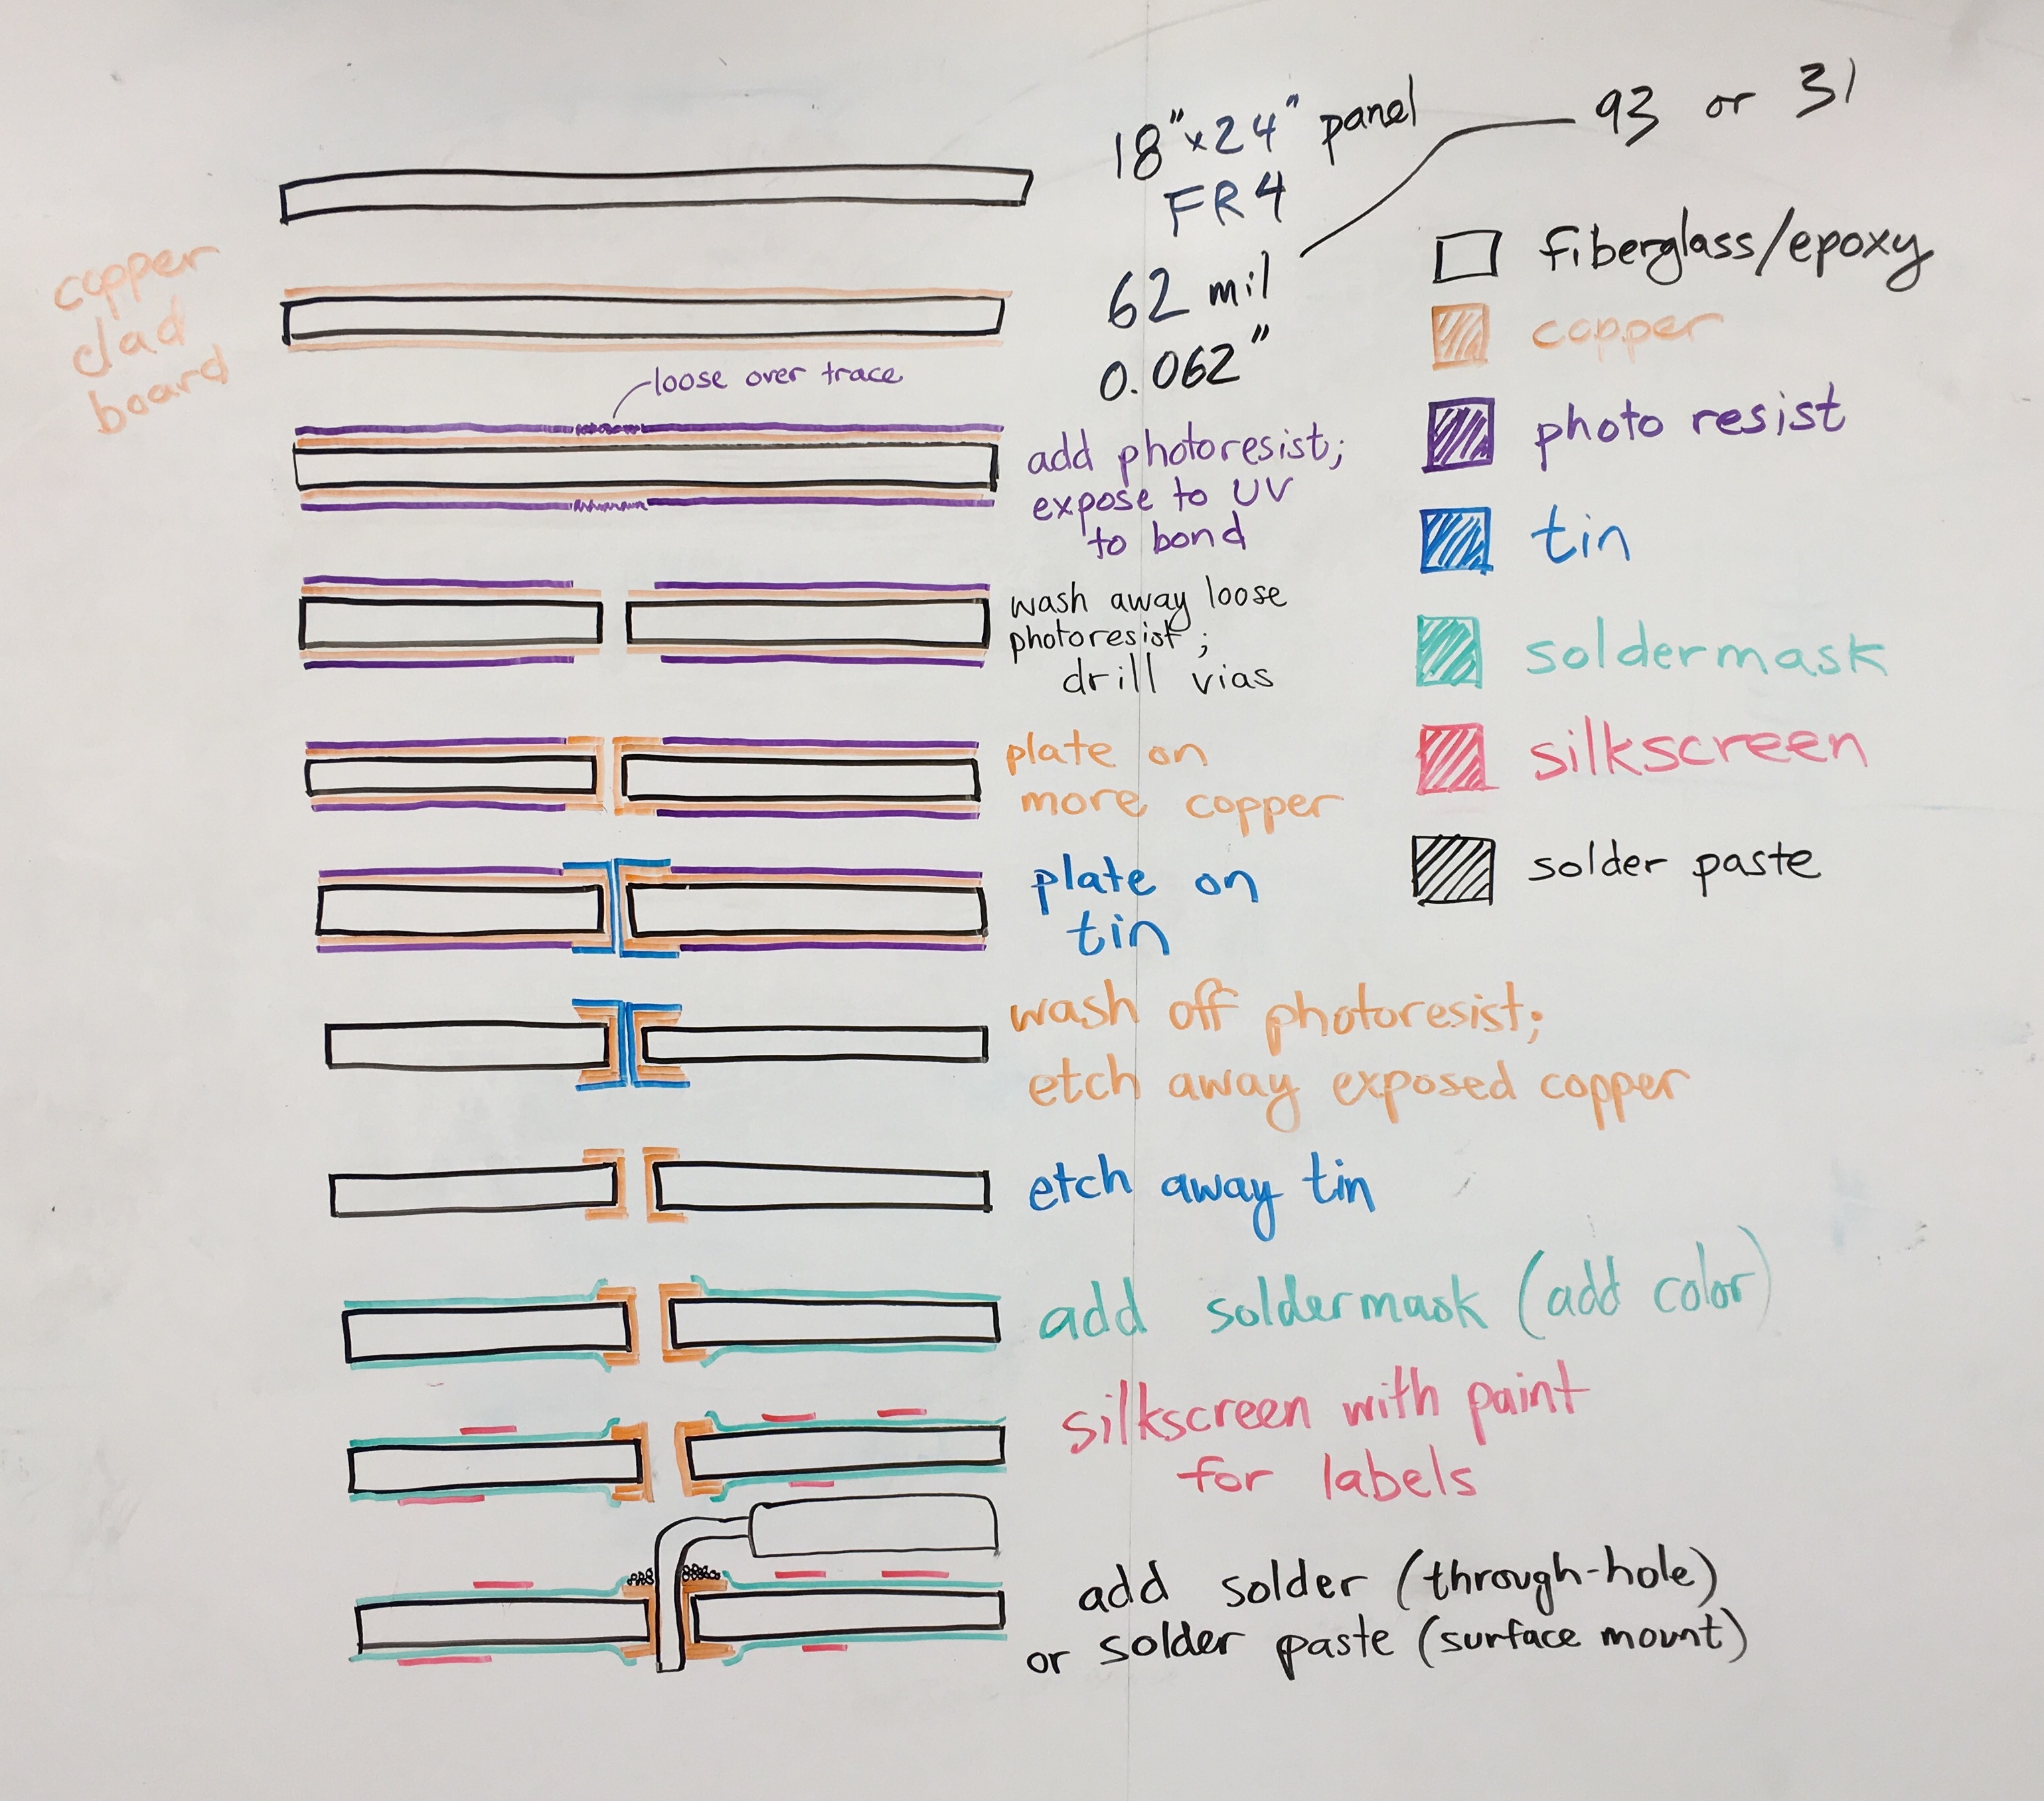 18"x24" panel
FR4
62 mil
0.062"
93 or 31
copper
clad
board
loose over trace
add photoresist;
expose to UV
to bond
wash away loose
photoresist;
drill vias
plate on
more copper
plate on
tin
wash off photoresist;
etch away exposed copper
etch away tin
add soldermask (add color)
silkscreen with paint
for labels
add solder (through-hole)
or solder paste (surface mount)
fiberglass/epoxy
copper
photo resist
tin
soldermask
silkscreen
solder paste